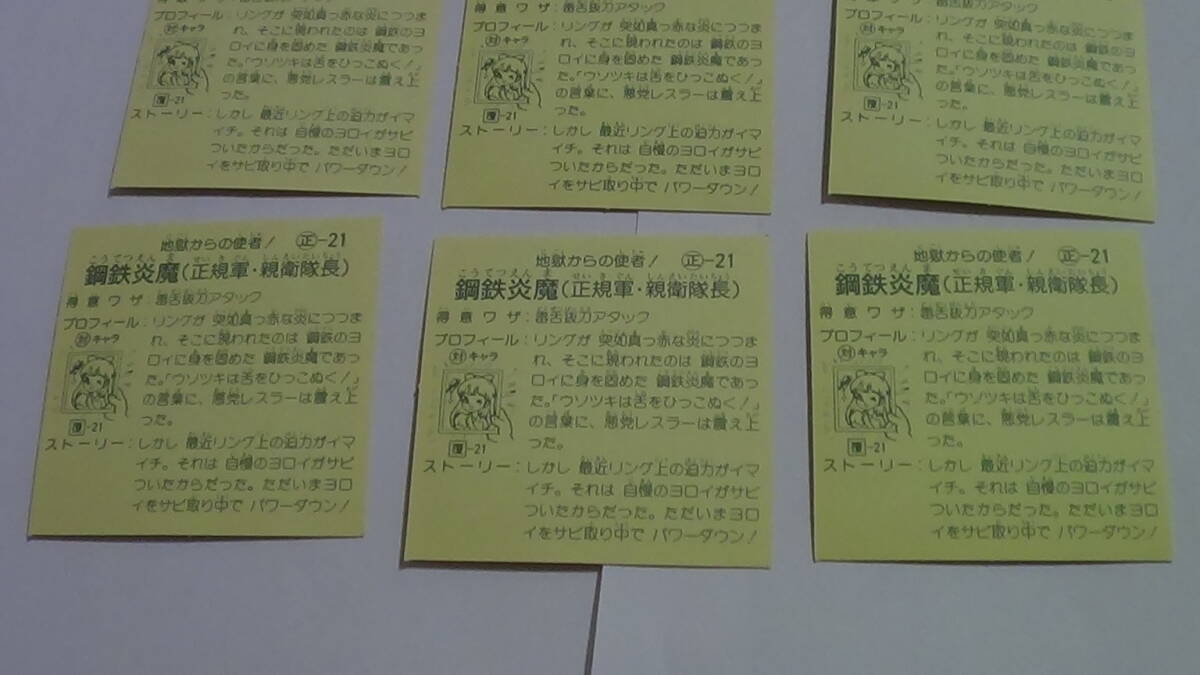 得意ワザ：毒舌抜刀アタック
プロフィール：リングが 突如真っ赤な炎につつま
れ、そこに現われたのは 鋼鉄のヨ
ロイに身を固めた 鋼鉄炎魔であっ
た。「ウソツキは舌をひっこぬく！」
の言葉に、悪党レスラーは震え上
った。
対キャラ
覆-21
ストーリー：しかし 最近リング上の迫力がイマ
イチ。それは 自慢のヨロイがサビ
ついたからだった。ただいまヨロ
イをサビ取り中で パワーダウン！
得意ワザ：毒舌抜刀アタック
プロフィール：リングが 突如真っ赤な炎につつま
れ、そこに現われたのは 鋼鉄のヨ
ロイに身を固めた 鋼鉄炎魔であっ
た。「ウソツキは舌をひっこぬく！」
の言葉に、悪党レスラーは震え上
った。
対キャラ
覆-21
ストーリー：しかし 最近リング上の迫力がイマ
イチ。それは 自慢のヨロイがサビ
ついたからだった。ただいまヨロ
イをサビ取り中で パワーダウン！
毒舌抜刀アタック
プロフィール：リングが 突如真っ赤な炎につつま
れ、そこに現われたのは 鋼鉄のヨ
ロイに身を固めた 鋼鉄炎魔であっ
た。「ウソツキは舌をひっこぬく！」
の言葉に、悪党レスラーは震え上
った。
対キャラ
覆-21
ストーリー：しかし 最近リング上の迫力がイマ
イチ。それは 自慢のヨロイがサビ
ついたからだった。ただいまヨロ
イをサビ取り中で パワーダウン！
地獄からの使者！ 正-21
こうてつえんま せいきぐん しんえいたいちょう
鋼鉄炎魔(正規軍・親衛隊長)
得意ワザ：毒舌抜刀アタック
プロフィール：リングが 突如真っ赤な炎につつま
れ、そこに現われたのは 鋼鉄のヨ
ロイに身を固めた 鋼鉄炎魔であっ
た。「ウソツキは舌をひっこぬく！」
の言葉に、悪党レスラーは震え上
った。
対キャラ
覆-21
ストーリー：しかし 最近リング上の迫力がイマ
イチ。それは 自慢のヨロイがサビ
ついたからだった。ただいまヨロ
イをサビ取り中で パワーダウン！
地獄からの使者！ 正-21
こうてつえんま せいきぐん しんえいたいちょう
鋼鉄炎魔(正規軍・親衛隊長)
得意ワザ：毒舌抜刀アタック
プロフィール：リングが 突如真っ赤な炎につつま
れ、そこに現われたのは 鋼鉄のヨ
ロイに身を固めた 鋼鉄炎魔であっ
た。「ウソツキは舌をひっこぬく！」
の言葉に、悪党レスラーは震え上
った。
対キャラ
覆-21
ストーリー：しかし 最近リング上の迫力がイマ
イチ。それは 自慢のヨロイがサビ
ついたからだった。ただいまヨロ
イをサビ取り中で パワーダウン！
地獄からの使者！ 正-21
こうてつえんま せいきぐん しんえいたいちょう
鋼鉄炎魔(正規軍・親衛隊長)
得意ワザ：毒舌抜刀アタック
プロフィール：リングが 突如真っ赤な炎につつま
れ、そこに現われたのは 鋼鉄のヨ
ロイに身を固めた 鋼鉄炎魔であっ
た。「ウソツキは舌をひっこぬく！」
の言葉に、悪党レスラーは震え上
った。
対キャラ
覆-21
ストーリー：しかし 最近リング上の迫力がイマ
イチ。それは 自慢のヨロイがサビ
ついたからだった。ただいまヨロ
イをサビ取り中で パワーダウン！